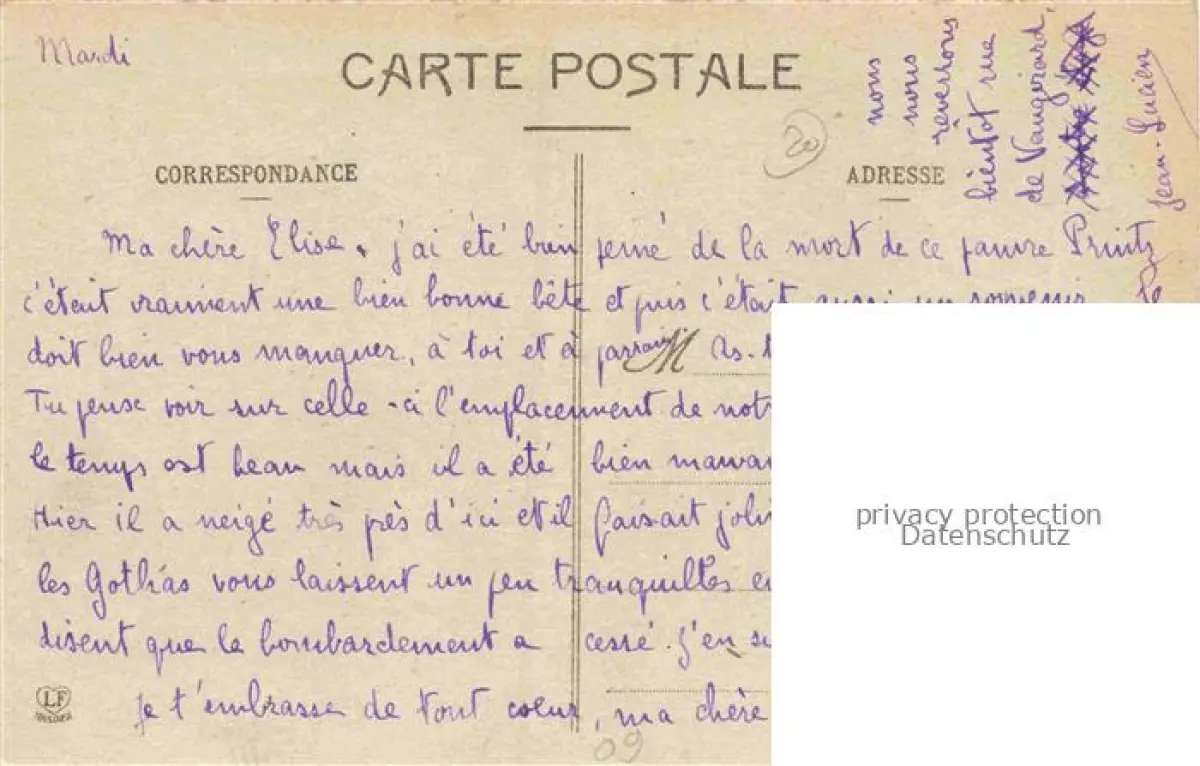 Mardi
CARTE POSTALE
20
CORRESPONDANCE
ADRESSE
Ma chère Elise, j'ai été bien peiné de la mort de ce pauvre Printz
c'était vraiment une bien bonne bête et puis c'était aussi un souvenir
doit bien vous manquer, à toi et à parrain M As-t
Tu peux voir sur celle-ci l'emplacement de notr
le temps est beau mais il a été bien mauvai
Hier il a neigé très près d'ici et il faisait joli
les Gothas vous laissent un peu tranquilles e
disent que le bombardement a cessé. J'en su
Je t'embrasse de tout coeur, ma chère
nous
nous
reverrons
bientôt rue
de Vaugirard,
Jean-Lucien
LF
TOULOUSE
09
privacy protection
Datenschutz